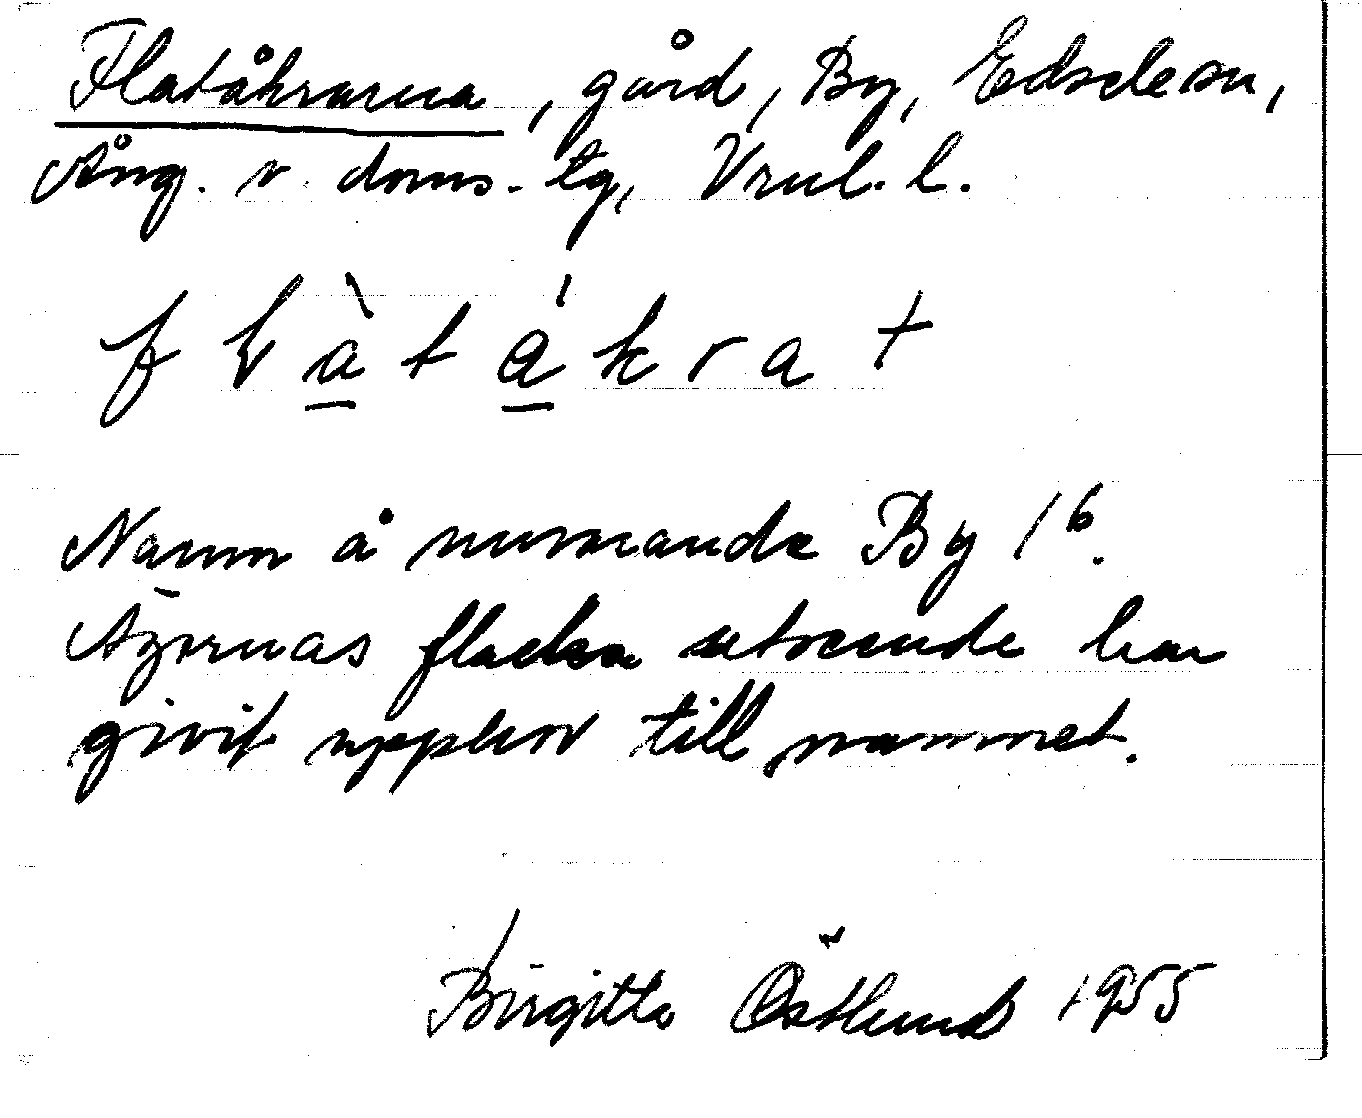 Flatåkrarna, gård, By, Edsele sn,
Ång. v. doms. tg, Vnl. l.
Namn å nuvarande By 1⁶.
Ägornas flacka utseende har
givit upphov till namnet.
Birgitta Östlund 1955